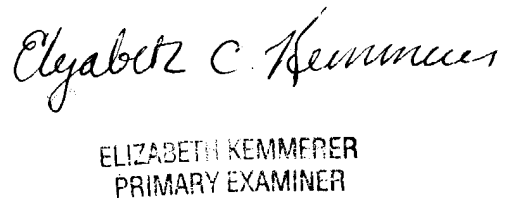 Elizabeth C. Kemmerer
ELIZABETH KEMMERER
PRIMARY EXAMINER